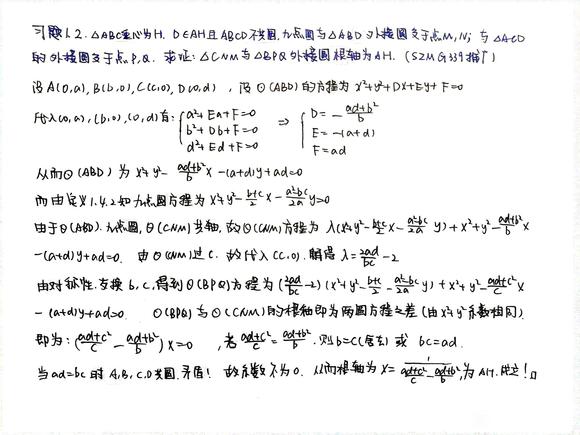 习题1.2. △ABC垂心为H. D∈AH且ABCD不共圆. 九点圆与△ABD外接圆交于点M,N; 与△ACD
的外接圆交于点P,Q. 求证: △CNM与△BPQ外接圆根轴为AH. (SZMG339推广)
设A(0,a), B(b,0), C(c,0), D(0,d), 设⊙(ABD)的方程为x²+y²+Dx+Ey+F=0
代入(0,a), (b,0), (0,d)有: { a²+Ea+F=0 b²+Db+F=0 d²+Ed+F=0 ⇒ { D=-\frac{ad+b²}{b} E=-(a+d) F=ad
从而⊙(ABD)为x²+y²-\frac{ad+b²}{b}x-(a+d)y+ad=0
而由定义1.4.2知九点圆方程为x²+y²-\frac{b+c}{2}x-\frac{a²-bc}{2a}y=0
由于⊙(ABD), 九点圆, ⊙(CNM)共轴, 故⊙(CNM)方程为 λ(x²+y²-\frac{b+c}{2}x-\frac{a²-bc}{2a}y)+x²+y²-\frac{ad+b²}{b}x
-(a+d)y+ad=0. 由⊙(CNM)过C. 故代入C(c,0). 解得λ=\frac{2ad}{bc}-2
由对称性. 交换b,c, 得到⊙(BPQ)方程为(\frac{2ad}{bc}-2)(x²+y²-\frac{b+c}{2}-\frac{a²-bc}{2a}y)+x²+y²-\frac{ad+c²}{c}x
-(a+d)y+ad=0. ⊙(BPQ)与⊙(CNM)的根轴即为两圆方程之差(由x²+y²系数相同).
即为: (\frac{ad+c²}{c}-\frac{ad+b²}{b})x=0 , 若\frac{ad+c²}{c}=\frac{ad+b²}{b}. 则b=c(舍去) 或 bc=ad.
当ad=bc时 A,B,C,D共圆. 矛盾! 故系数不为0. 从而根轴为x=\frac{1}{\frac{ad+c²}{c}-\frac{ad+b²}{b}}, 为AH. 成立! □